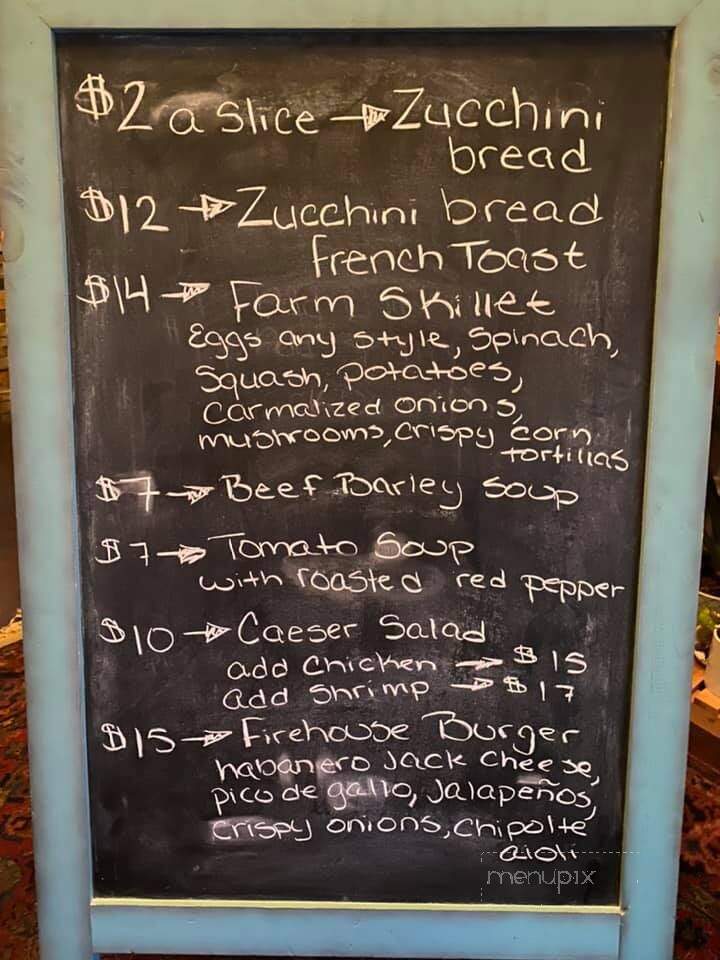 $2 a slice → Zucchini
bread
$12 → Zucchini bread
French Toast
$14 → Farm Skillet
Eggs any style, spinach,
squash, potatoes,
carmalized onions,
mushrooms, crispy corn
tortillas
$7 → Beef Barley soup
$7 → Tomato Soup
with roasted red pepper
$10 → Caeser Salad
add chicken → $15
add shrimp → $17
$15 → Firehouse Burger
habanero Jack cheese,
pico de gallo, Jalapeños,
crispy onions, chipolte
aioli
menupix